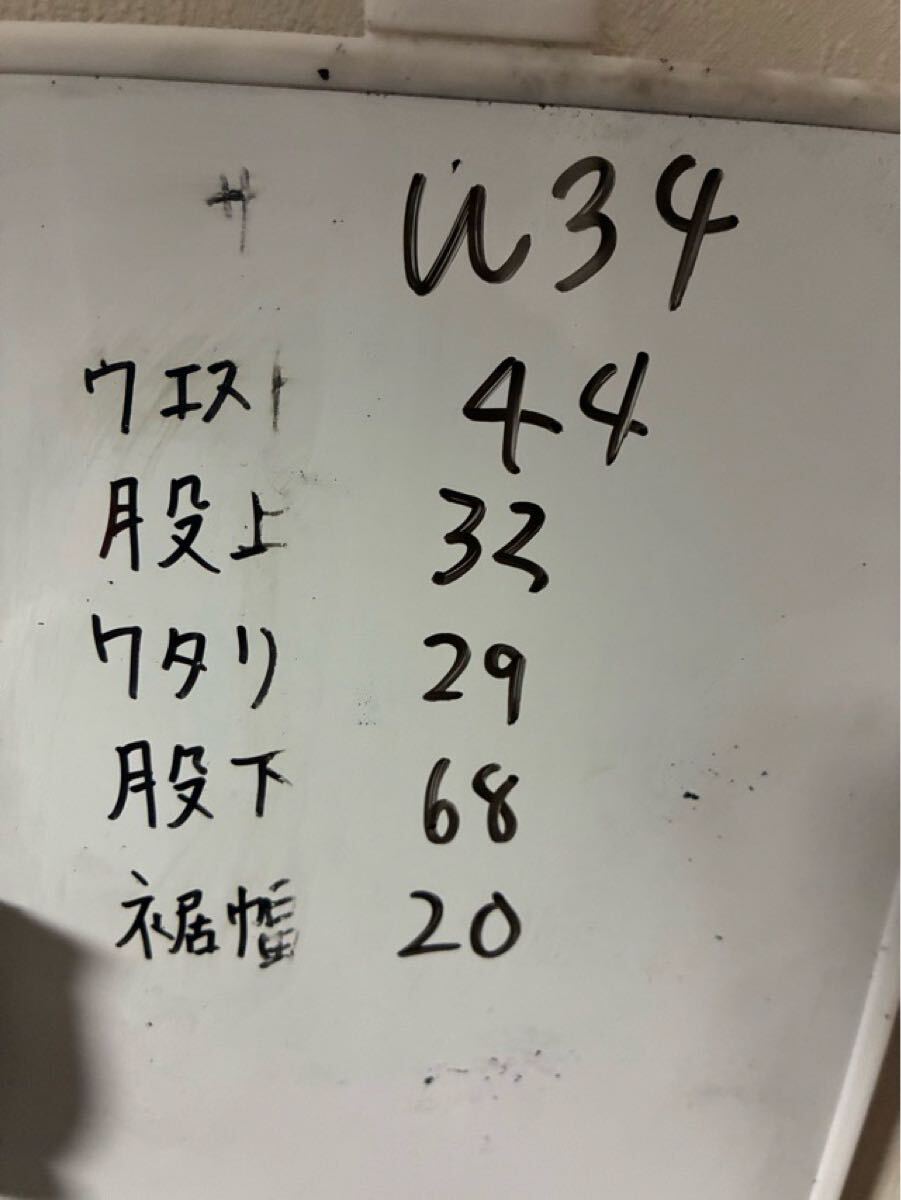 サ W34
ウエスト 44
股上 33
ワタリ 29
股下 68
裾幅 20